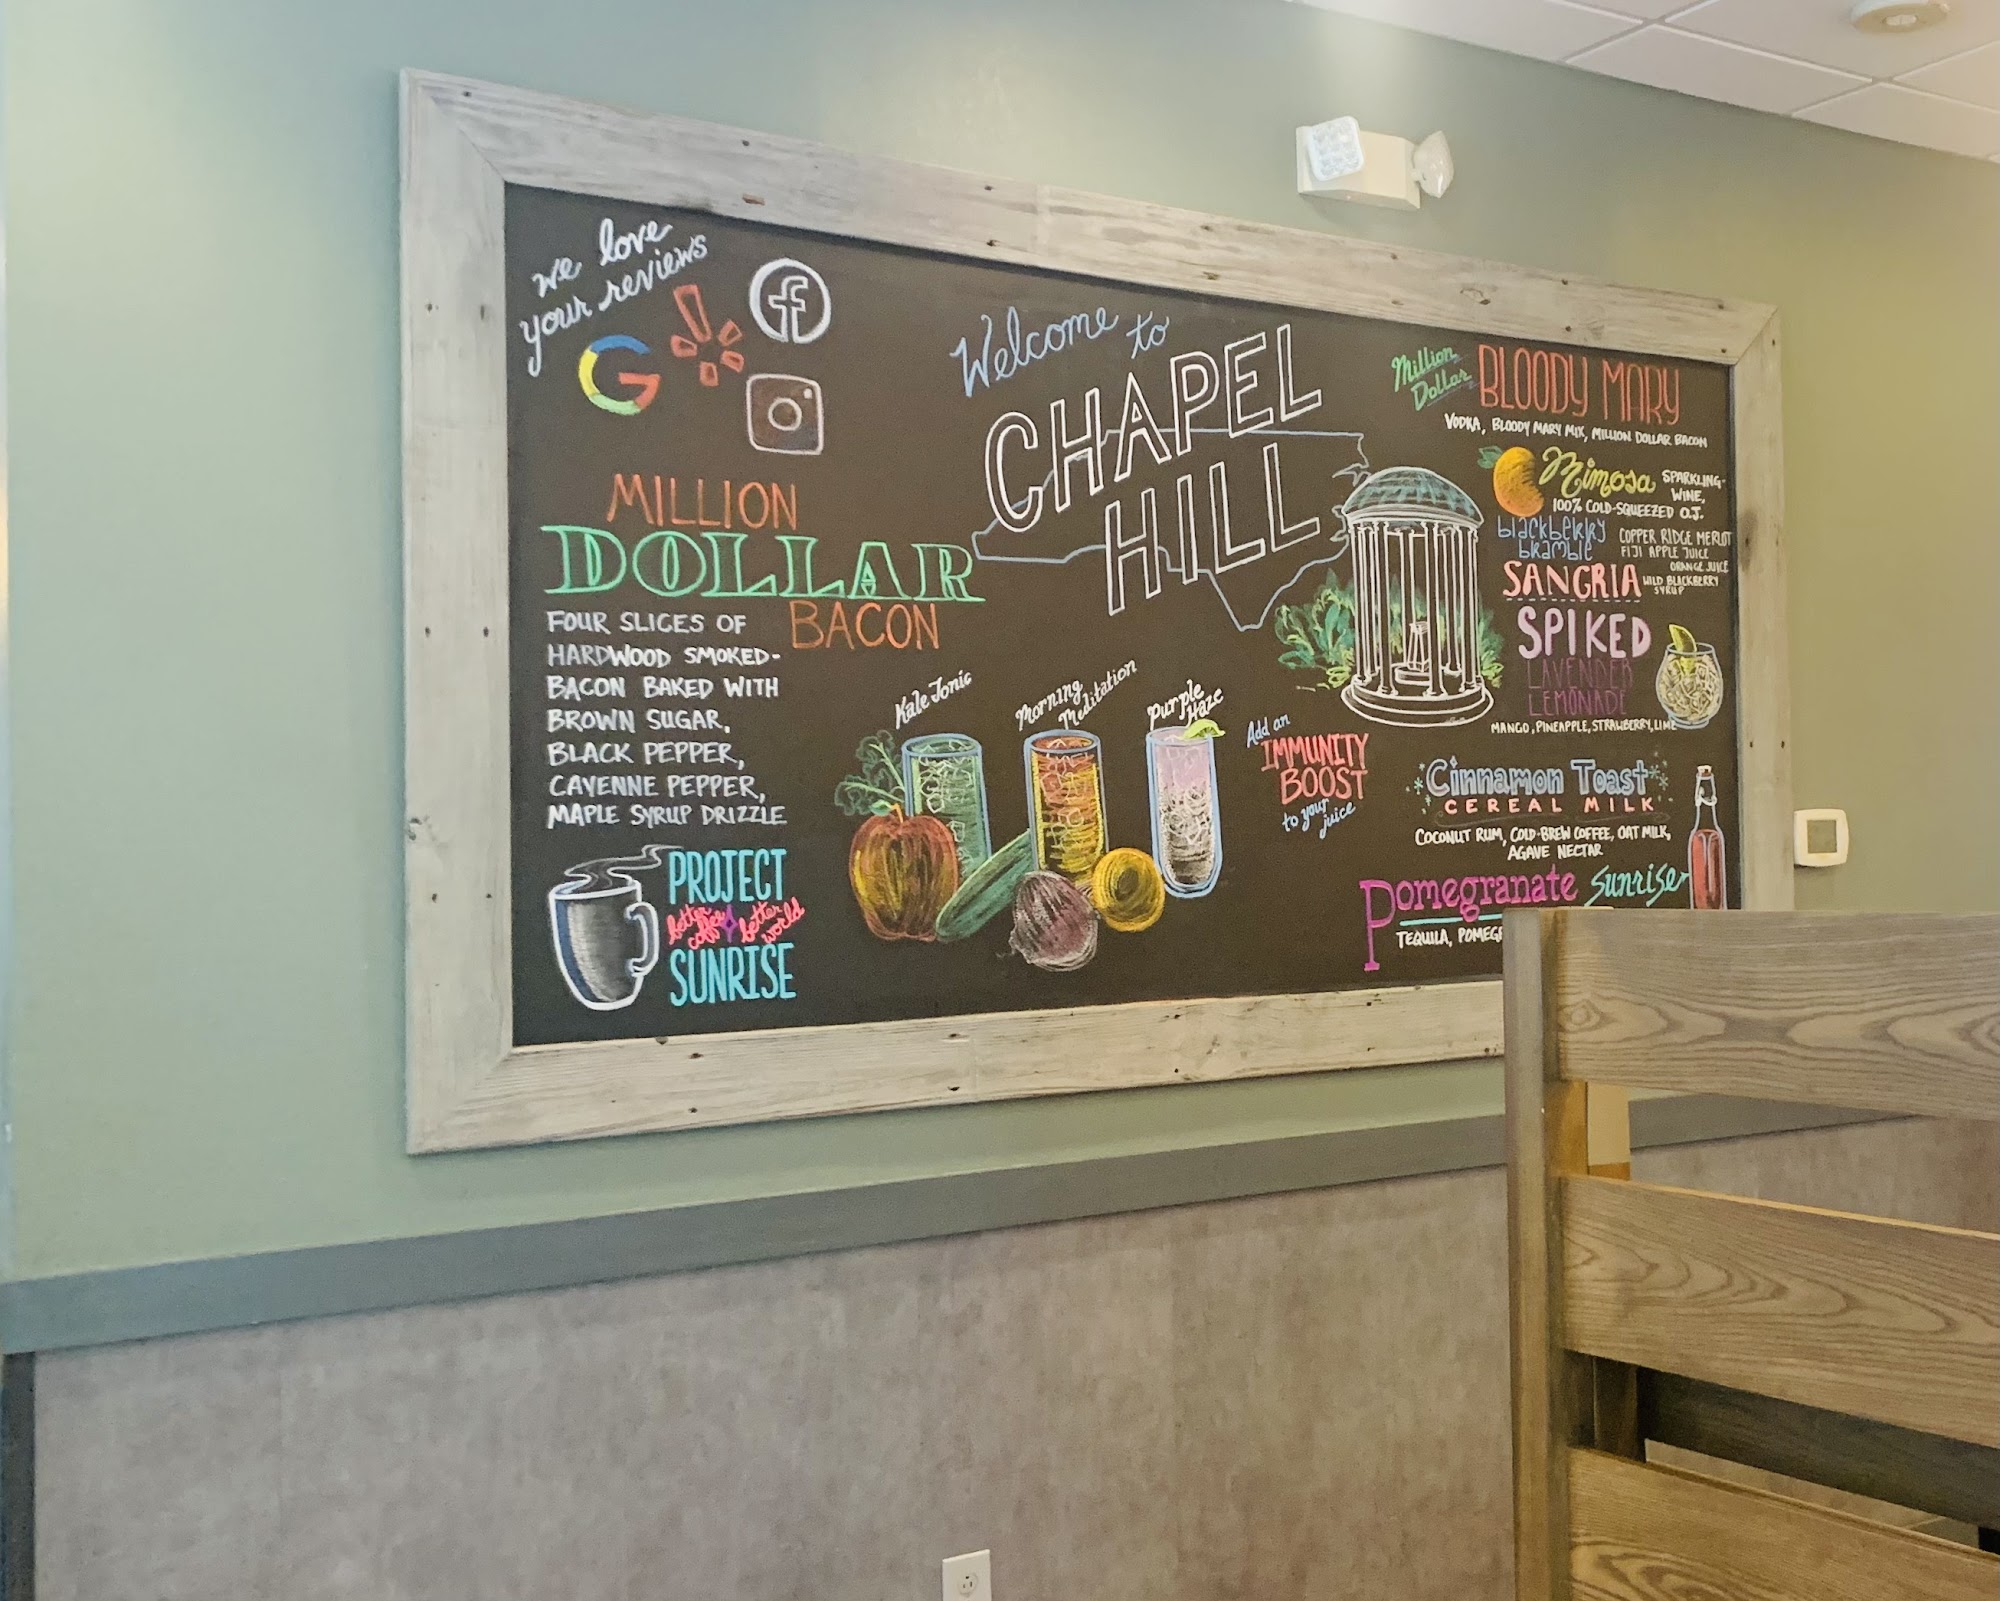 we love
your reviews
G
f
MILLION
DOLLAR
BACON
FOUR SLICES OF
HARDWOOD SMOKED-
BACON BAKED WITH
BROWN SUGAR,
BLACK PEPPER,
CAYENNE PEPPER,
MAPLE SYRUP DRIZZLE
PROJECT
better coffee better world
SUNRISE
Welcome to
CHAPEL
HILL
Kale Tonic
Morning
Meditation
Purple
Haze
Add an
IMMUNITY
BOOST
to your
juice
Million
Dollar
BLOODY MARY
VODKA, BLOODY MARY MIX, MILLION DOLLAR BACON
Mimosa
SPARKLING-
WINE,
100% COLD-SQUEEZED O.J.
blackberry
bramble
SANGRIA
COPPER RIDGE MERLOT
FIJI APPLE JUICE
ORANGE JUICE
WILD BLACKBERRY
SYRUP
SPIKED
LAVENDER
LEMONADE
MANGO, PINEAPPLE, STRAWBERRY, LIME
Cinnamon Toast
CEREAL MILK
COCONUT RUM, COLD-BREW COFFEE, OAT MILK,
AGAVE NECTAR
Pomegranate Sunrise
TEQUILA, POMEG